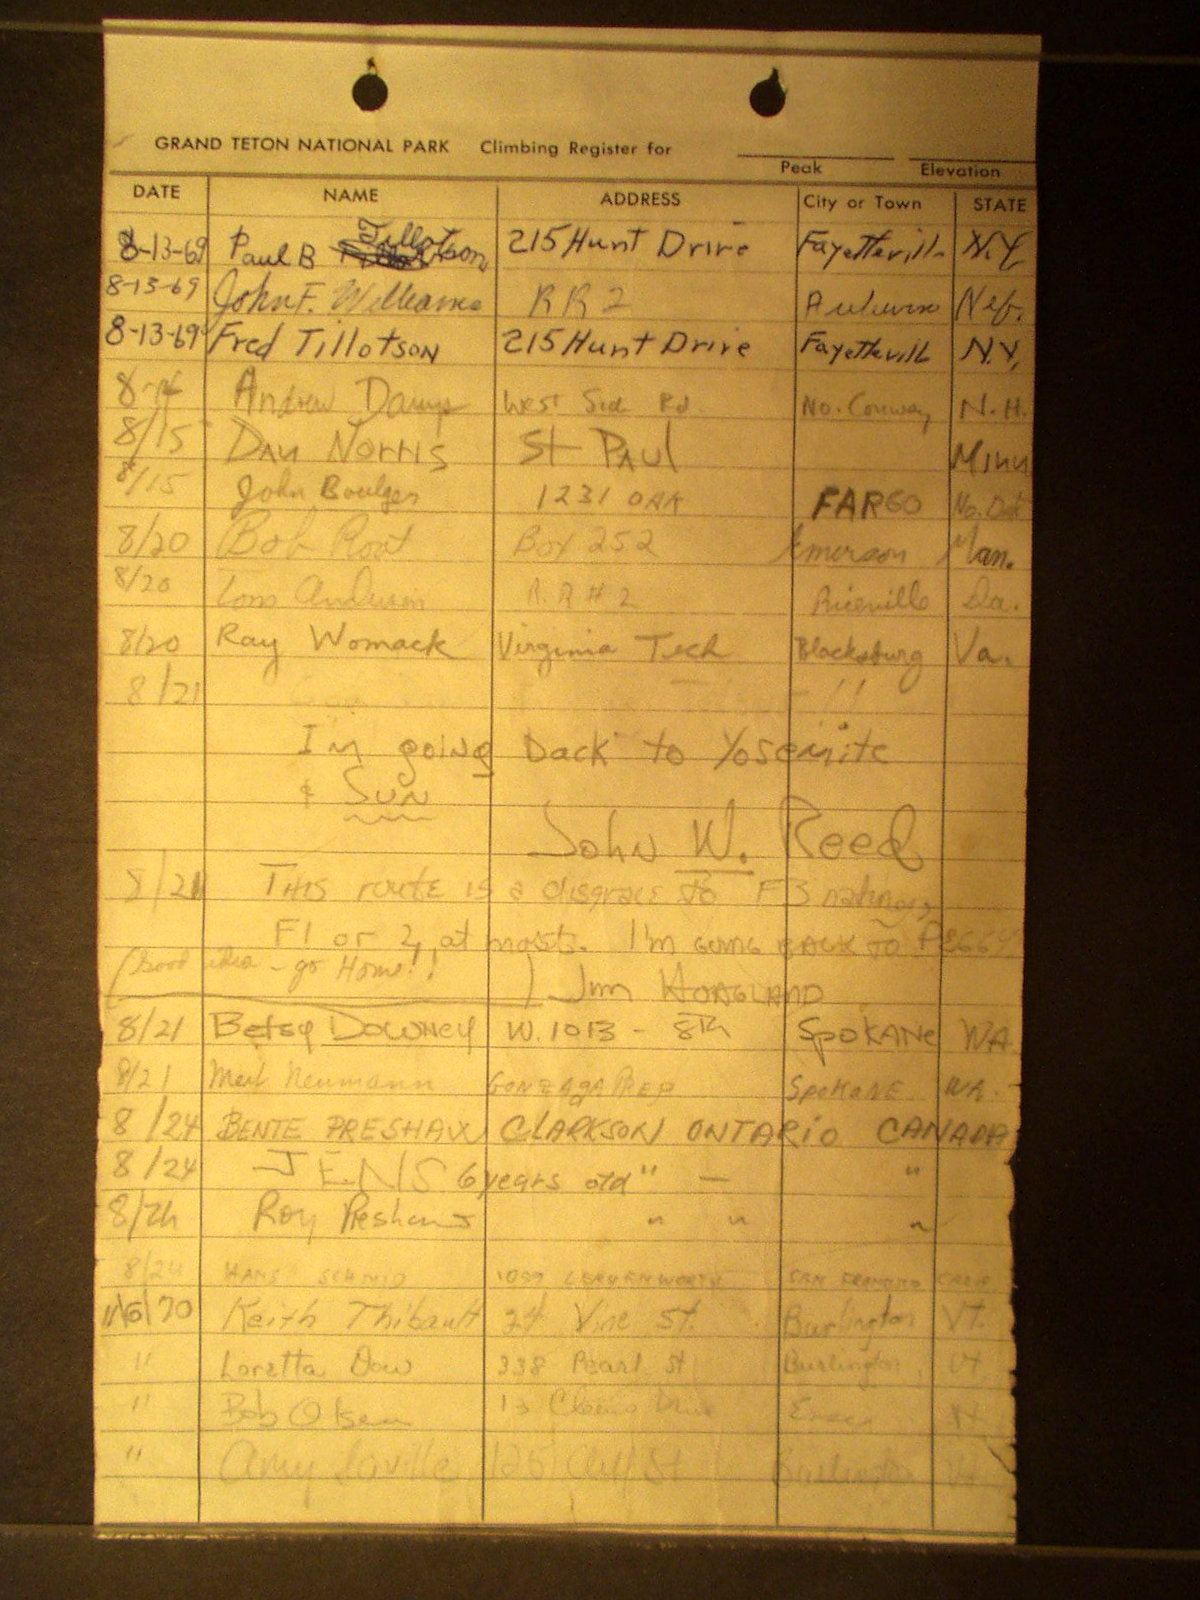 GRAND TETON NATIONAL PARK Climbing Register for
Peak Elevation
DATE NAME ADDRESS City or Town STATE
8-13-69 Paul B Tillotson 215 Hunt Drive Fayettevill N.Y
8-13-69 John F. Williams RR 2 Auburn Neb.
8-13-69 Fred Tillotson 215 Hunt Drive Fayettevill N.Y.
8-14 Andrew West Side Rd. No. Conway N.H.
8/15 Dan Norris St Paul Minn
8/15 John Boulger 1231 OAK FARGO No. Dak
8/20 Bob Root Box 252 Emerson Man.
8/20 Tom R.R #2 Riceville Ia.
8/20 Ray Womack Virginia Tech Blacksburg Va.
8/21
I'm going back to Yosemite
& SUN
John W. Reed
8/21 THIS route is a disgrace to F3 ratings,
F1 or 2, at most. I'm GOING BACK TO
(Good idea - go Home!!) Jim HOAGLAND
8/21 Betsy Downey W. 1013 - 8TH SPOKANE WA.
8/21 Neumann GONZAGA PREP SPOKANE WA.
8/24 BENTE PRESHAW CLARKSON ONTARIO CANADA
8/24 JENS 6 years old " — "
8/24 Roy Preshaw " " "
8/24 HANS SCHMID 1099 LEAVENWORTH SAN FRANCISCO CALIF
70 Keith Thibault 24 Vine St. Burlington VT.
" Loretta Dow 338 Pearl St Burlington Vt
" Bob Olsen 13 Drive Essex Vt
" Amy Saville 125 Cliff St Burlington Vt